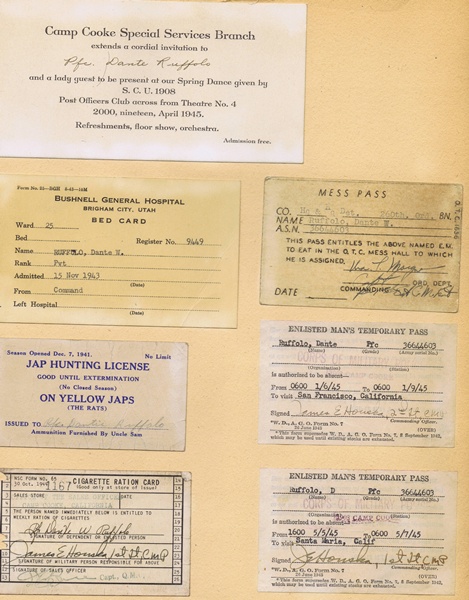 Camp Cooke Special Services Branch
extends a cordial invitation to
Pfc. Dante Ruffolo
and a lady guest to be present at our Spring Dance given by
S. C. U. 1908
Post Officers Club across from Theatre No. 4
2000, nineteen, April 1945.
Refreshments, floor show, orchestra.
Admission free.
BUSHNELL GENERAL HOSPITAL
BRIGHAM CITY, UTAH
BED CARD
Ward 25
Bed Register No. 9449
Name RUFFOLO, Dante W.
Rank Pvt
Admitted 15 Nov 1943
From Command
Left Hospital
MESS PASS
CO. Hq & Det. BN.
NAME Ruffolo, Dante W.
A.S.N. 36644603
THIS PASS ENTITLES THE ABOVE NAMED E.M.
TO EAT IN THE O.T.C. MESS HALL TO WHICH
HE IS ASSIGNED.
ORD. DEPT.
DATE COMMANDING
Season Opened Dec. 7, 1941. No Limit
JAP HUNTING LICENSE
GOOD UNTIL EXTERMINATION
(No Closed Season)
ON YELLOW JAPS
(THE RATS)
ISSUED TO Pfc. Dante Ruffolo
Ammunition Furnished By Uncle Sam
ENLISTED MAN'S TEMPORARY PASS
Ruffolo, Dante Pfc 36644603
(Name) (Grade) (Army serial No.)
(Organization)
is authorized to be absent—
From 0600 1/6/45 To 0600 1/9/45
To visit San Francisco, California
Signed James E Houska 2nd Lt CMP
(Commanding Officer)
W. D., A. G. O. Form No. 7
(OVER)
CIGARETTE RATION CARD
30 Oct. 1944 1167 (Good only at store of issue)
SALES STORE DATE
THE PERSON NAMED IMMEDIATELY BELOW IS ENTITLED TO
WEEKLY RATION OF CIGARETTES
SIGNATURE OF DEPENDENT OR ENLISTED PERSON
James E Houska 1st Lt CMP
SIGNATURE OF MILITARY PERSON RESPONSIBLE FOR ABOVE
SIGNATURE OF SALES OFFICER
ENLISTED MAN'S TEMPORARY PASS
Ruffolo, D Pfc 36644603
(Name) (Grade) (Army serial No.)
(Organization)
is authorized to be absent—
From 1600 5/5/45 To 0600 5/7/45
To visit Santa Maria, Calif
Signed J E Houska, 1st Lt CMP
(Commanding Officer)
W. D., A. G. O. Form No. 7
(OVER)